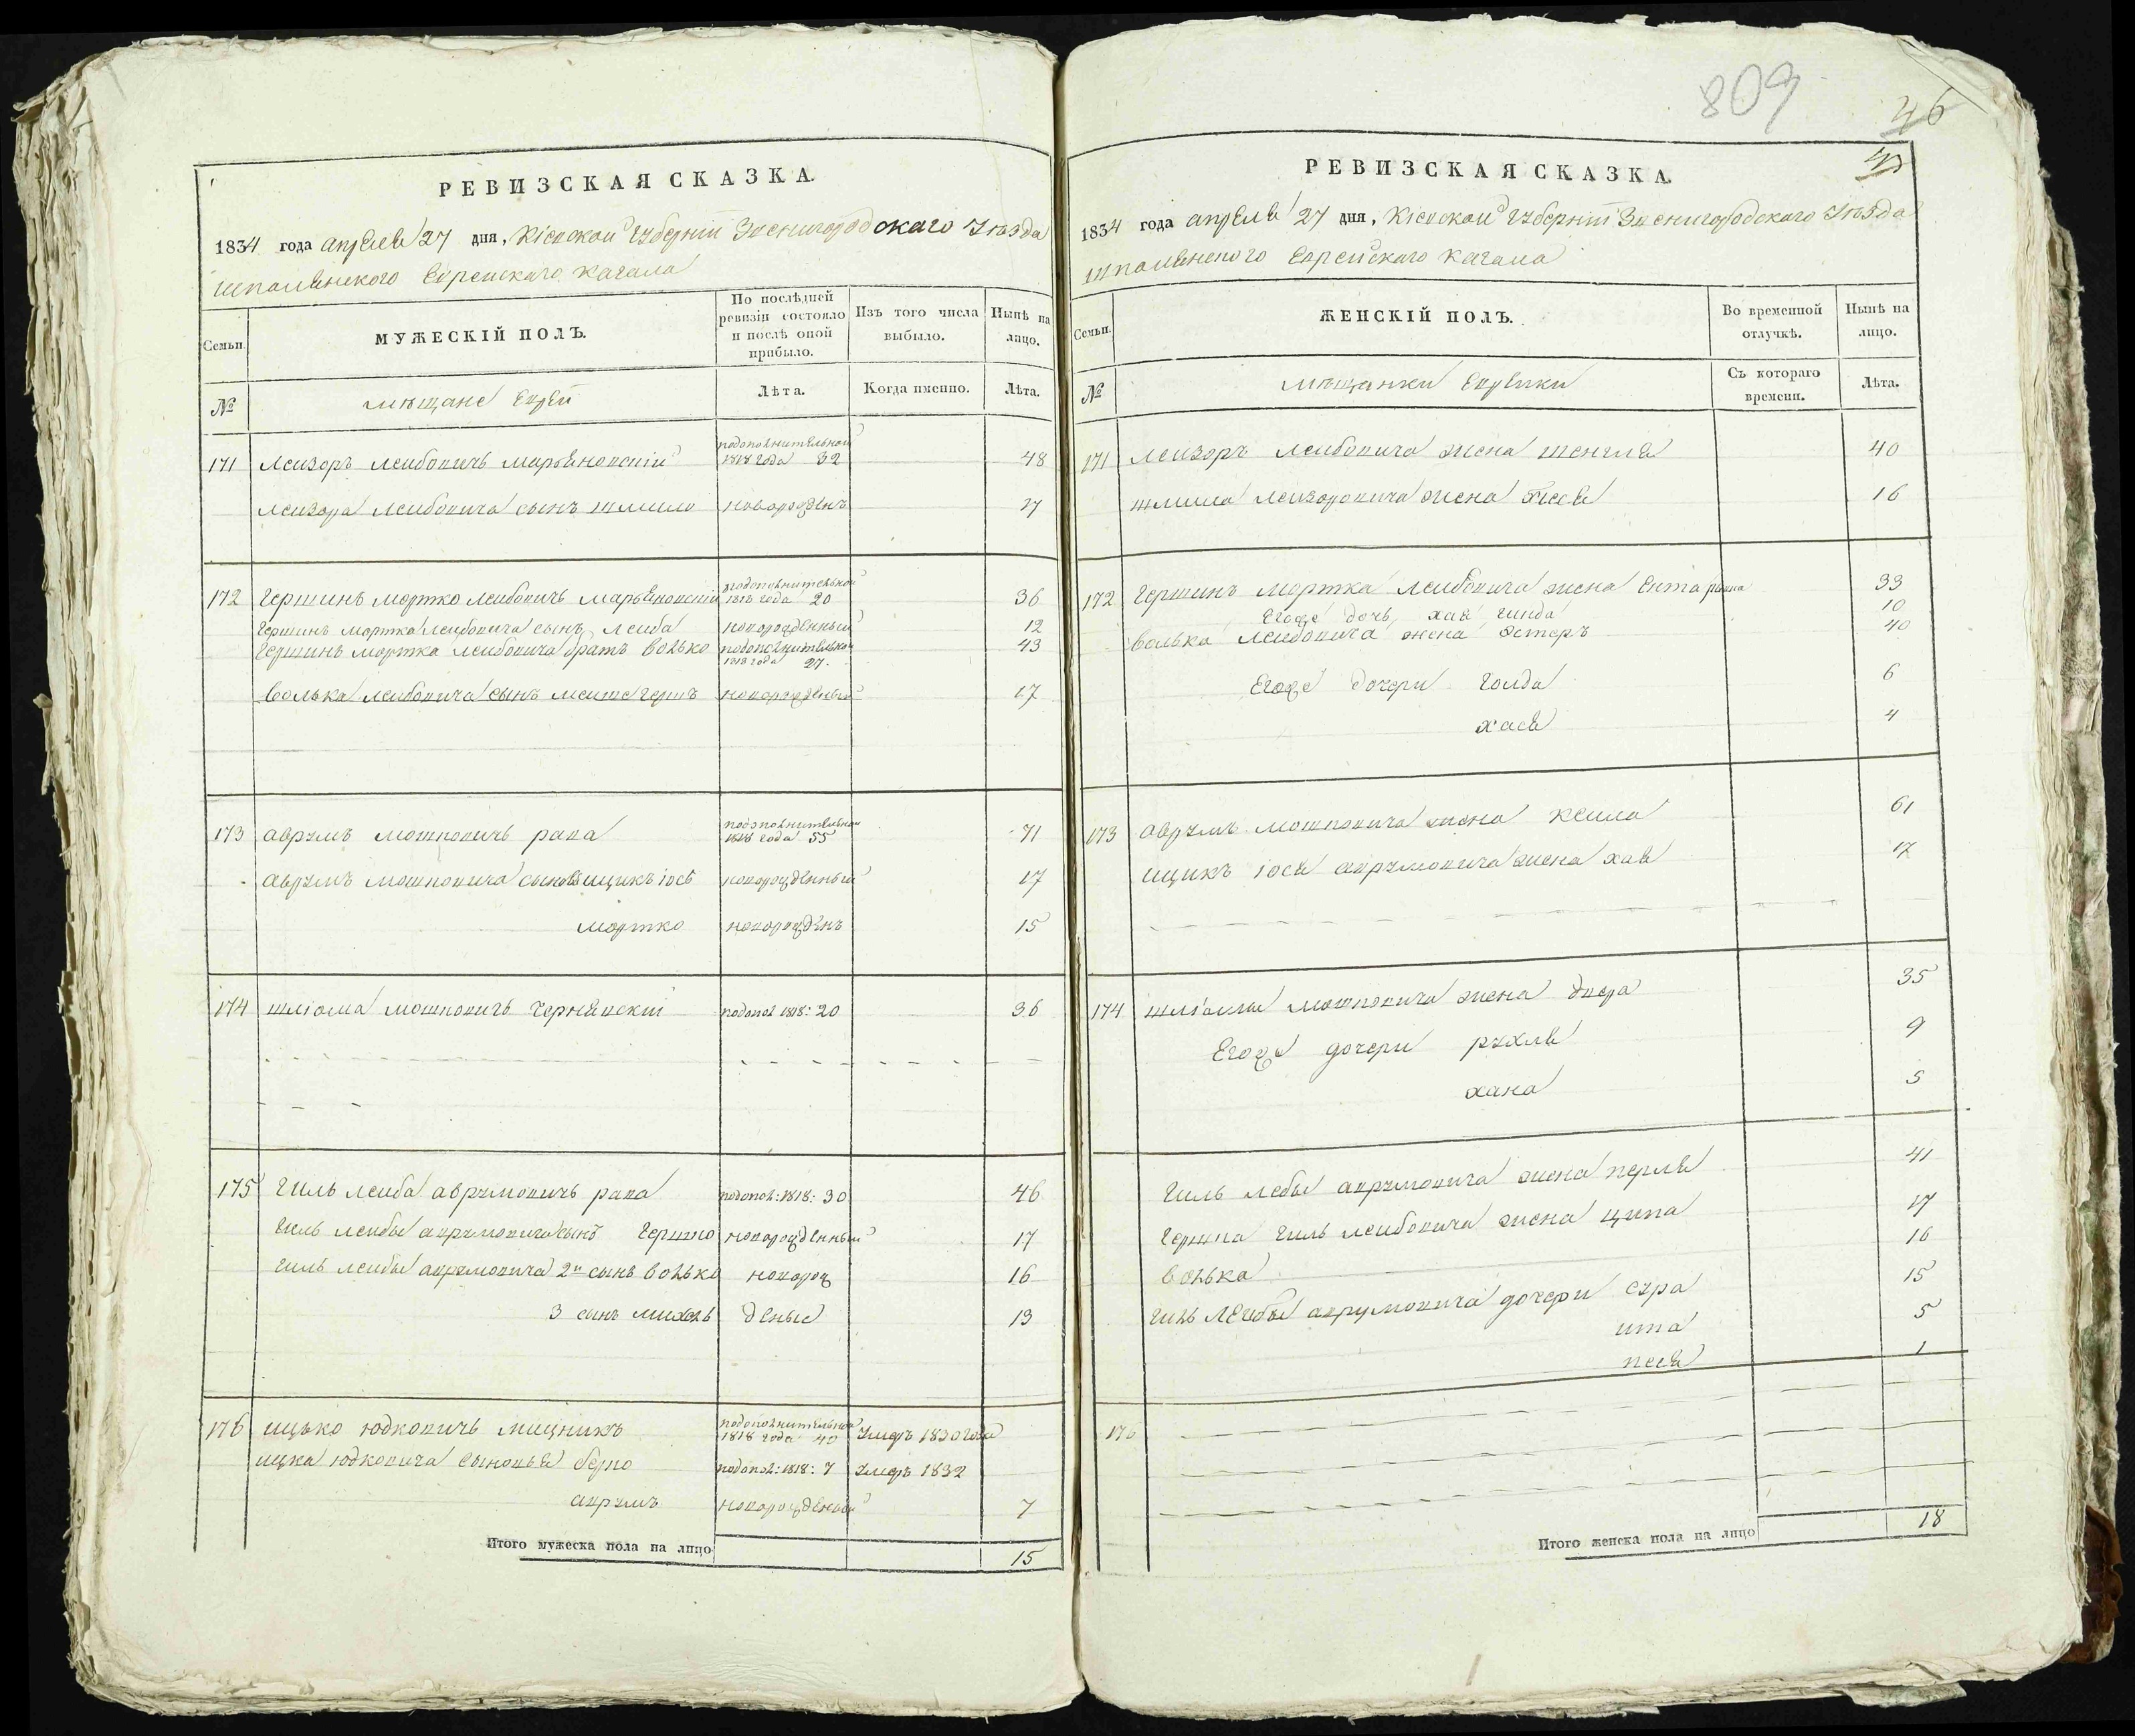 РЕВИЗСКАЯ СКАЗКА.
1834 года апреля 27 дня, Кіевской Губерніи Звенигородского Уезда
шполянского Еврейскаго кагала
Семьи.
МУЖЕСКІЙ ПОЛЪ.
По послѣдней ревизіи состояло и послѣ оной прибыло.
Изъ того числа выбыло.
Нынѣ на лицо.
№
мещане Евреи
Лѣта.
Когда именно.
Лѣта.
171 Лейзоръ Лейбовичь Марьяновскій подополнительной 1818 года 32 48
Лейзора Лейбовича сынъ Шлиома новорожденъ 17
172 Гершинъ Мортко Лейбовичь Марьяновскій подополнительной 1818 года 20 36
Гершинъ Мортка Лейбовича сынъ Лейба новорожденный 12
Гершинъ Мортка Лейбовича братъ Волько подополнительной 1818 года 27. 43
Волька Лейбовича сынъ Гершъ новорожденный 17
173 Аврумъ Мошковичь рапа подополнительной 1818 года 55 71
Аврумъ Мошковича сыновя ицикъ іосъ новорожденный 17
мортко новорожденъ 15
174 Шліома Мошковичь Чернявскій подопол 1818: 20 36
175 Гиль Лейба Аврумовичь рапа подопол: 1818: 30 46
Гиль Лейбы Аврумовича сынъ Гершко новорожденный 17
Гиль Лейбы Аврумовича 2й сынъ Волько новорож 16
3 сынъ михель деные 13
176 ицько Юдковичь подополнительной 1818 года 40 умеръ 1830 года
ицка Юдковича сыновья берко подопол: 1818: 7 умеръ 1832
аврумъ новорожденный 7
Итого мужеска пола на лицо 15
809
46
РЕВИЗСКАЯ СКАЗКА.
1834 года апреля 27 дня, Кіевской Губерніи Звенигородскаго Уезда
шполянского Еврейскаго кагала
Семьи.
ЖЕНСКІЙ ПОЛЪ.
Во временной отлучкѣ.
Нынѣ на лицо.
№
мещанки Еврейки
Съ котораго времени.
Лѣта.
171 Лейзоръ Лейбовича жена 40
Шлиома Лейзоровича жена 16
172 Гершинъ Мортка Лейбовича жена Ента 33
Егоже дочь хая гинда 10
Волька Лейбовича жена Эстеръ 40
Егоже дочери голда 6
хася 4
173 Аврумъ Мошковича жена Кейла 61
ицикъ іося Аврумовича жена хая 17
174 Шліомы Мошковича жена двера 35
Егоже дочери рухля 9
хана 5
Гиль Лебы Аврумовича жена перля 41
Гершка Гиль Лейбовича жена ципа 17
Волька 16
Гиль Лейбы Аврумовича дочери сура 15
ита 5
песя 1
176
Итого женска пола на лицо 18